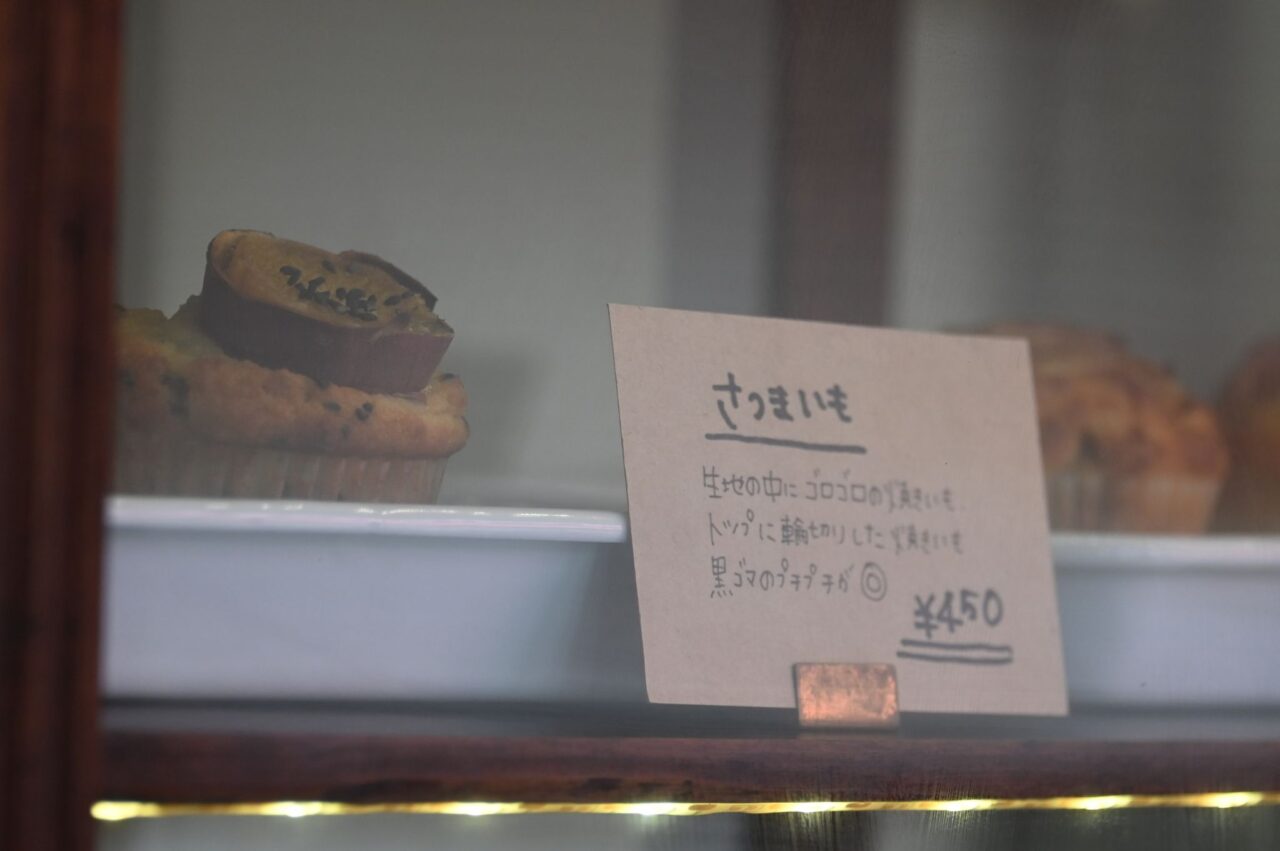 さつまいも
生地の中にゴロゴロの焼きいも
トップに輪切りした焼きいも
黒ゴマのプチプチが◎
¥450